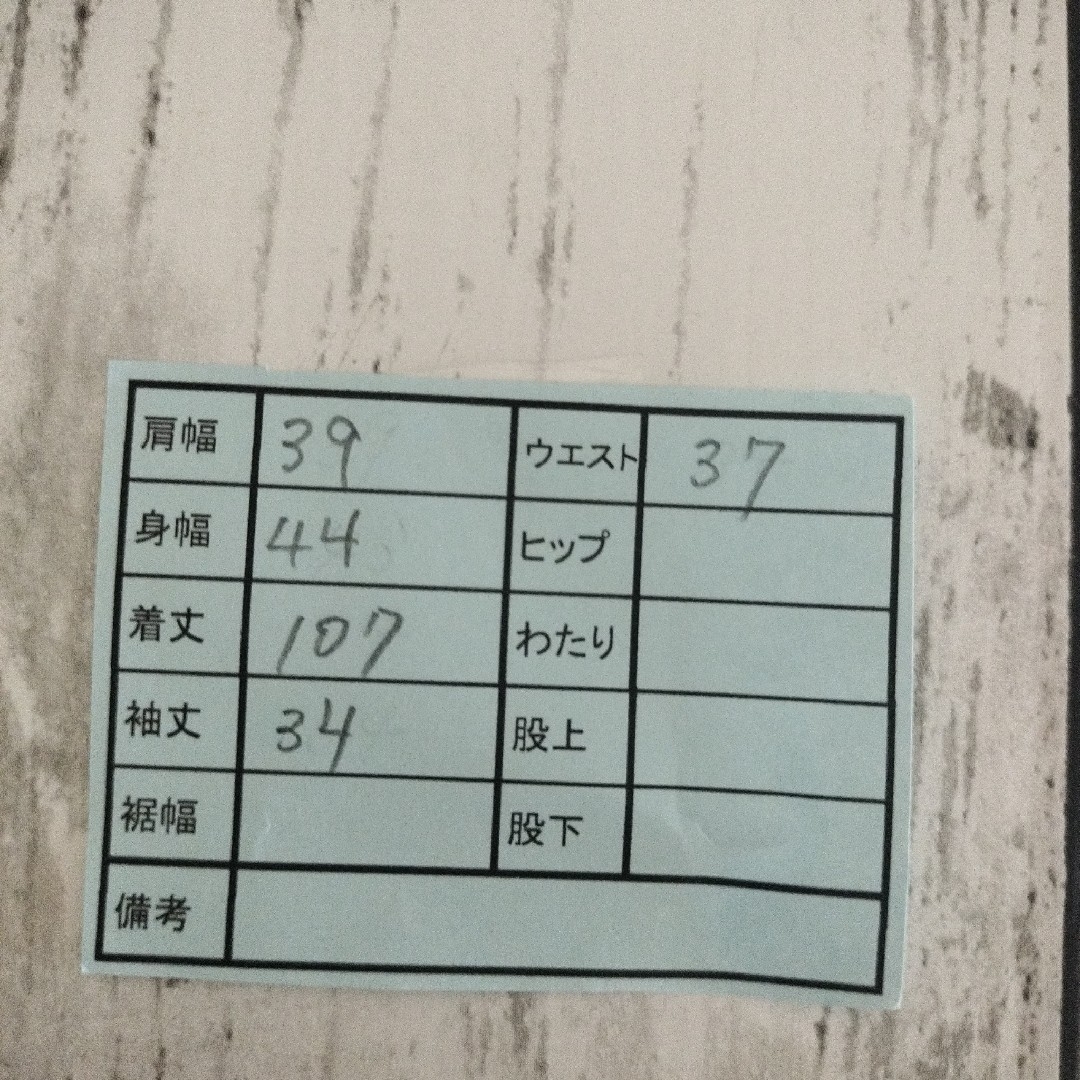 肩幅 39 ウエスト 37
身幅 44 ヒップ
着丈 107 わたり
袖丈 34 股上
裾幅 股下
備考